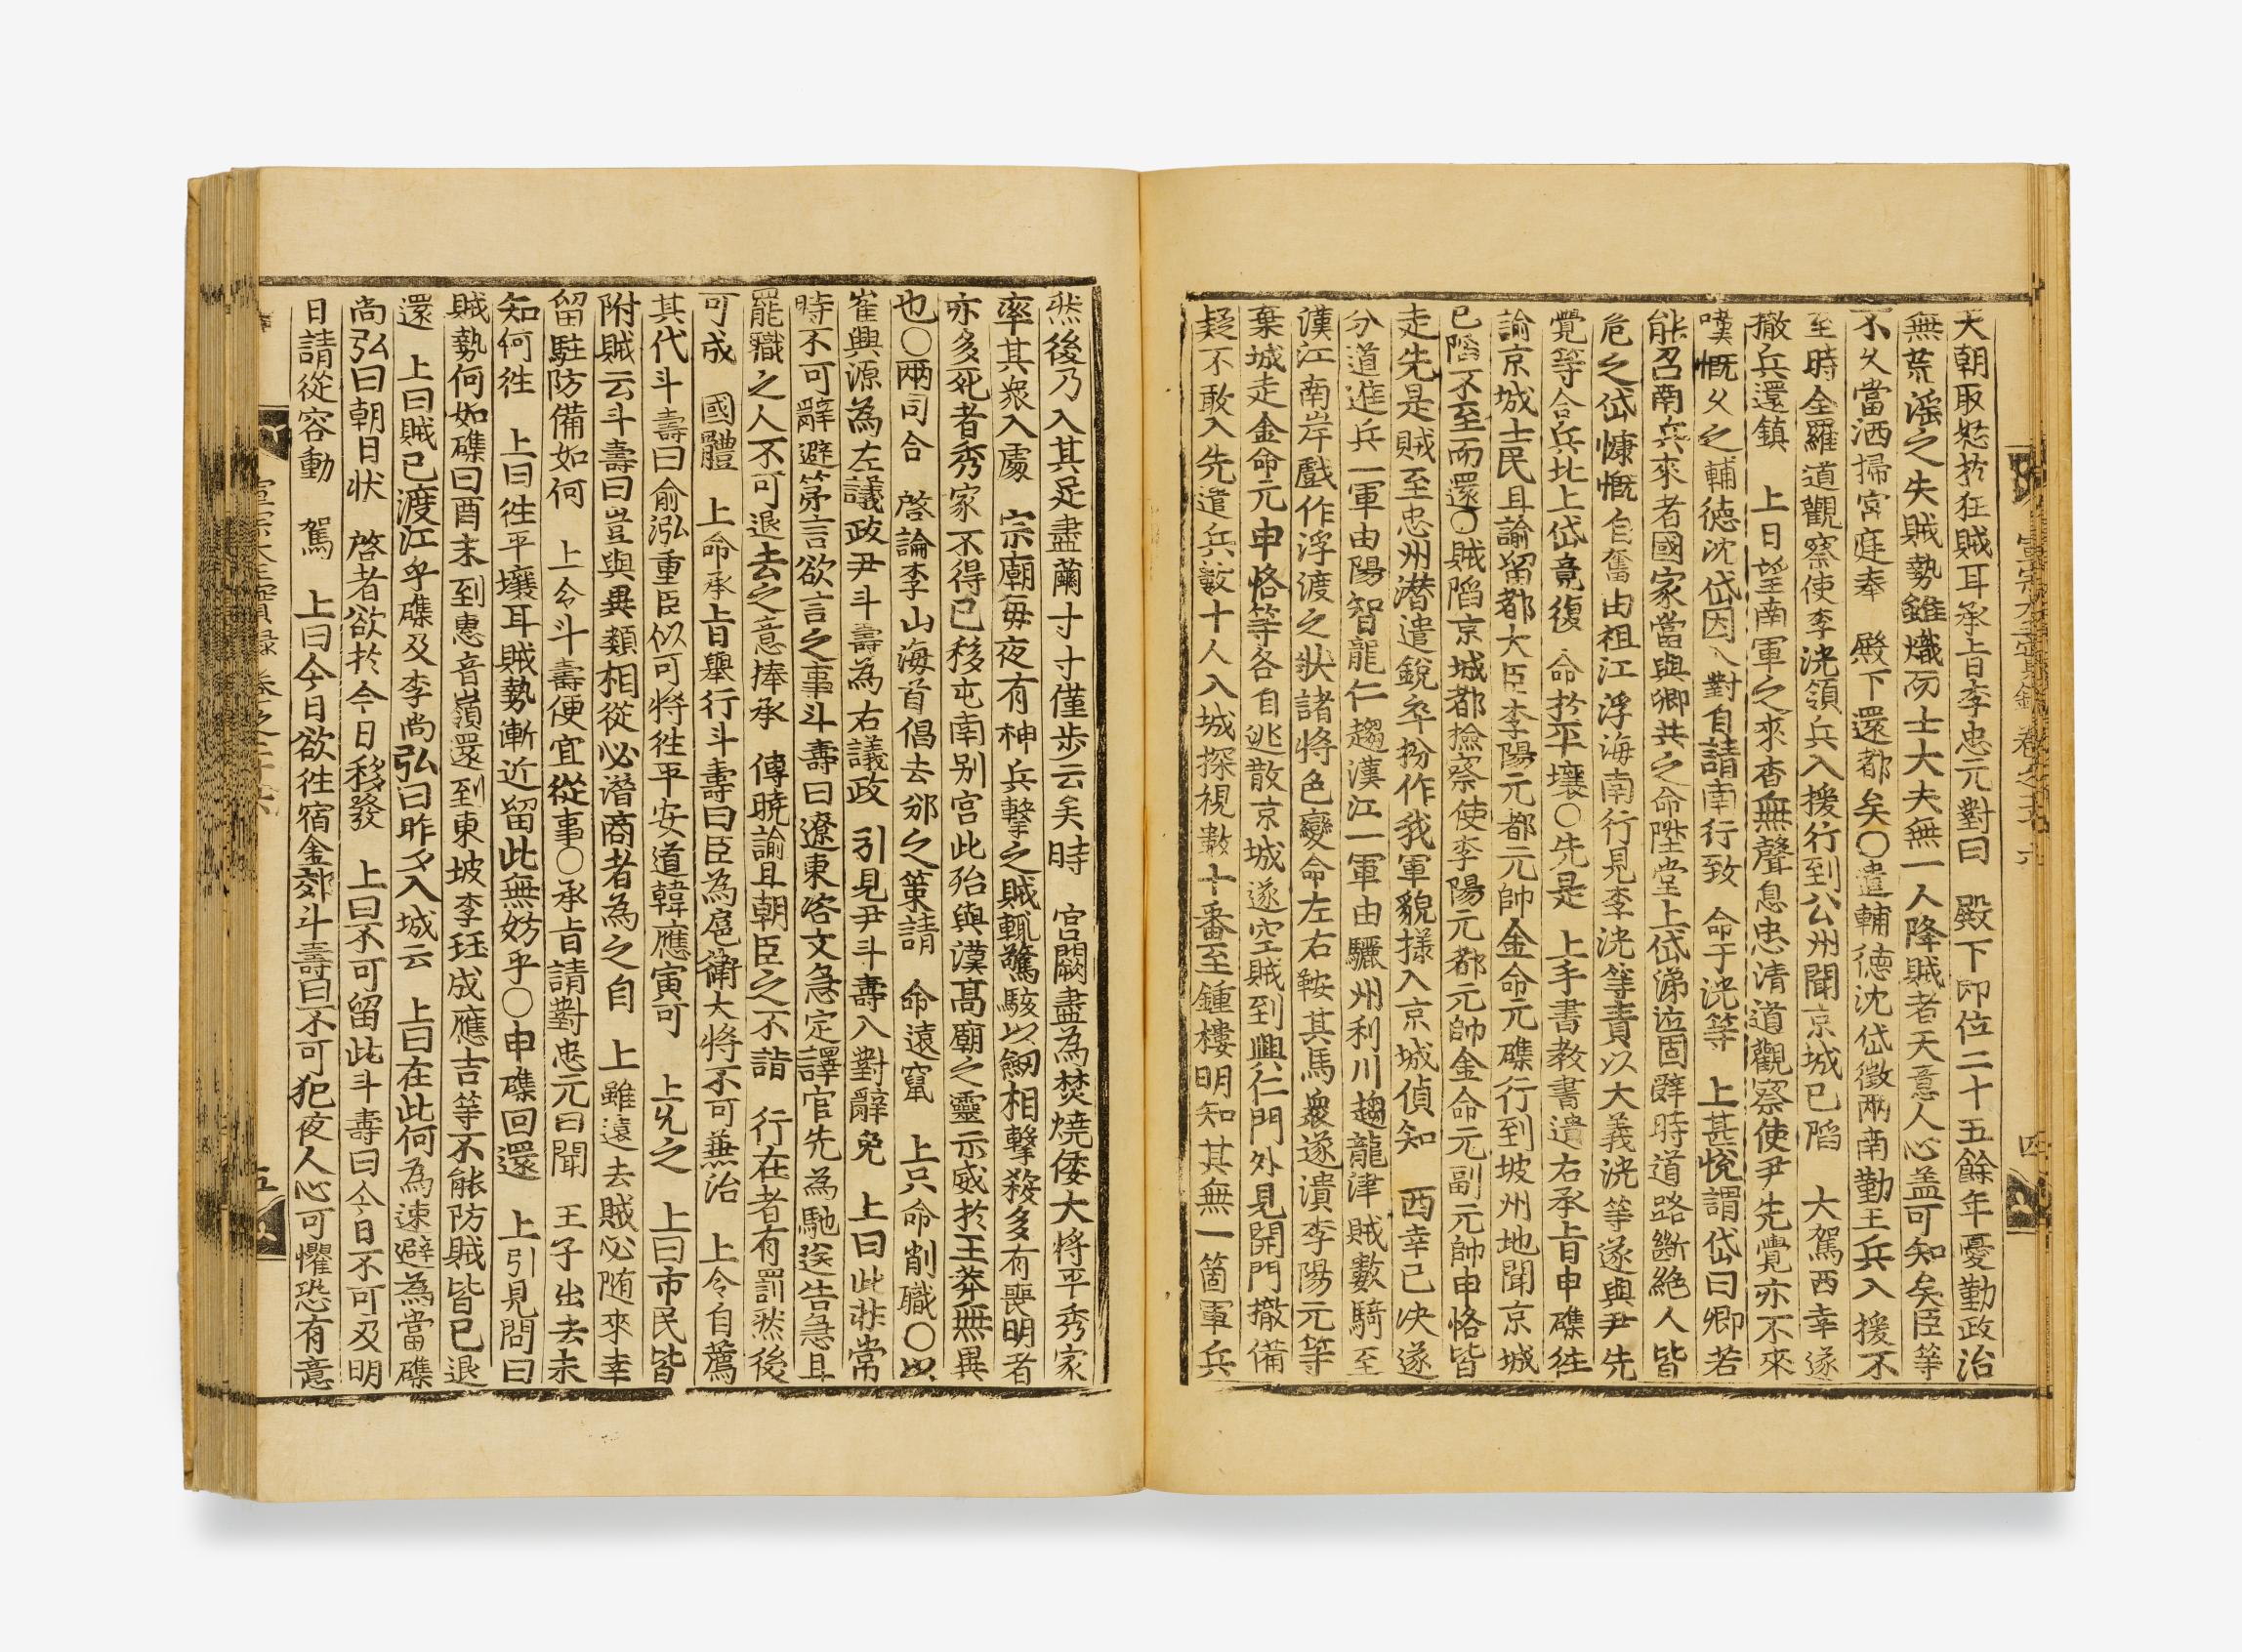 天朝取怒於狂賊耳承旨李忠元對曰　殿下卽位二十五餘年憂勤政治
無荒淫之失賊勢雖熾而士大夫無一人降賊者天意人心盖可知矣臣等
不久當洒掃宮庭奉　殿下還都矣○遣輔德沈岱徵兩南勤王兵入援不
至時全羅道觀察使李洸領兵入援行到公州聞京城已陷　大駕西幸遂
撤兵還鎭　上日望南軍之來杳無聲息忠淸道觀察使尹先覺亦不來
嘆慨久之輔德沈岱因入對自請南行致　命于洸等　上甚悅謂岱曰卿若
能召南兵來者國家當與卿共之命陞堂上岱涕泣固辭時道路斷絶人皆
危之岱慷慨自奮由祖江浮海南行見李洸等責以大義洸等遂與尹先
覺等合兵北上岱竟復　命於平壤○先是　上手書敎書遣右承旨申磼往
諭京城士民且諭留都大臣李陽元都元帥金命元磼行到坡州地聞京城
已陷不至而還○賊陷京城都檢察使李陽元都元帥金命元副元帥申恪皆
走先是賊至忠州潜遣銳卒扮作我軍貌㨾入京城偵知　西幸已决遂
分道進兵一軍由陽智龍仁趨漢江一軍由驪州利川趨龍津賊數騎至
漢江南岸戲作浮渡之狀諸將色變命左右鞍其馬衆遂潰李陽元等
棄城走金命元申恪等各自逃散京城遂空賊到興仁門外見開門撤備
疑不敢入先遣兵數十人入城探視數十番至鍾樓明知其無一箇軍兵
然後乃入其足盡繭寸寸僅步云矣時　宮闕盡爲焚燒倭大將平秀家
率其衆入處　宗廟每夜有神兵擊之賊輒驚駭以劒相擊殺多有喪明者
亦多死者秀家不得已移屯南別宮此殆與漢高廟之靈示威於王莽無異
也○兩司合　啓論李山海首倡去邠之策請　命遠竄　上只命削職○以
崔興源爲左議政尹斗壽爲右議政　引見尹斗壽入對辭免　上曰此非常
時不可辭避第言欲言之事斗壽曰遼東咨文急定譯官先爲馳送告急且
罷職之人不可退去之意捧承　傳曉諭且朝臣之不詣　行在者有罰然後
可成　國體　上命承旨擧行斗壽曰臣爲扈衛大將不可兼治　上令自薦
其代斗壽曰兪泓重臣似可將往平安道韓應寅可　上允之　上曰市民皆
附賊云斗壽曰豈與異類相從必潜商者爲之自　上雖遠去賊必隨來幸
留駐防備如何　上令斗壽便宜從事○承旨請對忠元曰聞　王子出去未
知何往　上曰往平壤耳賊勢漸近留此無妨乎○申磼回還　上引見問曰
賊勢何如磼曰酉末到惠音嶺還到東坡李珏成應吉等不能防賊皆已退
還　上曰賊已渡江乎磼及李尙弘曰昨夕入城云　上曰在此何爲速避爲當磼
尙弘曰朝日狀　啓者欲於今日移發　上曰不可留此斗壽曰今日不可及明
日請從容動　駕　上曰今日欲往宿金郊斗壽曰不可犯夜人心可懼恐有意